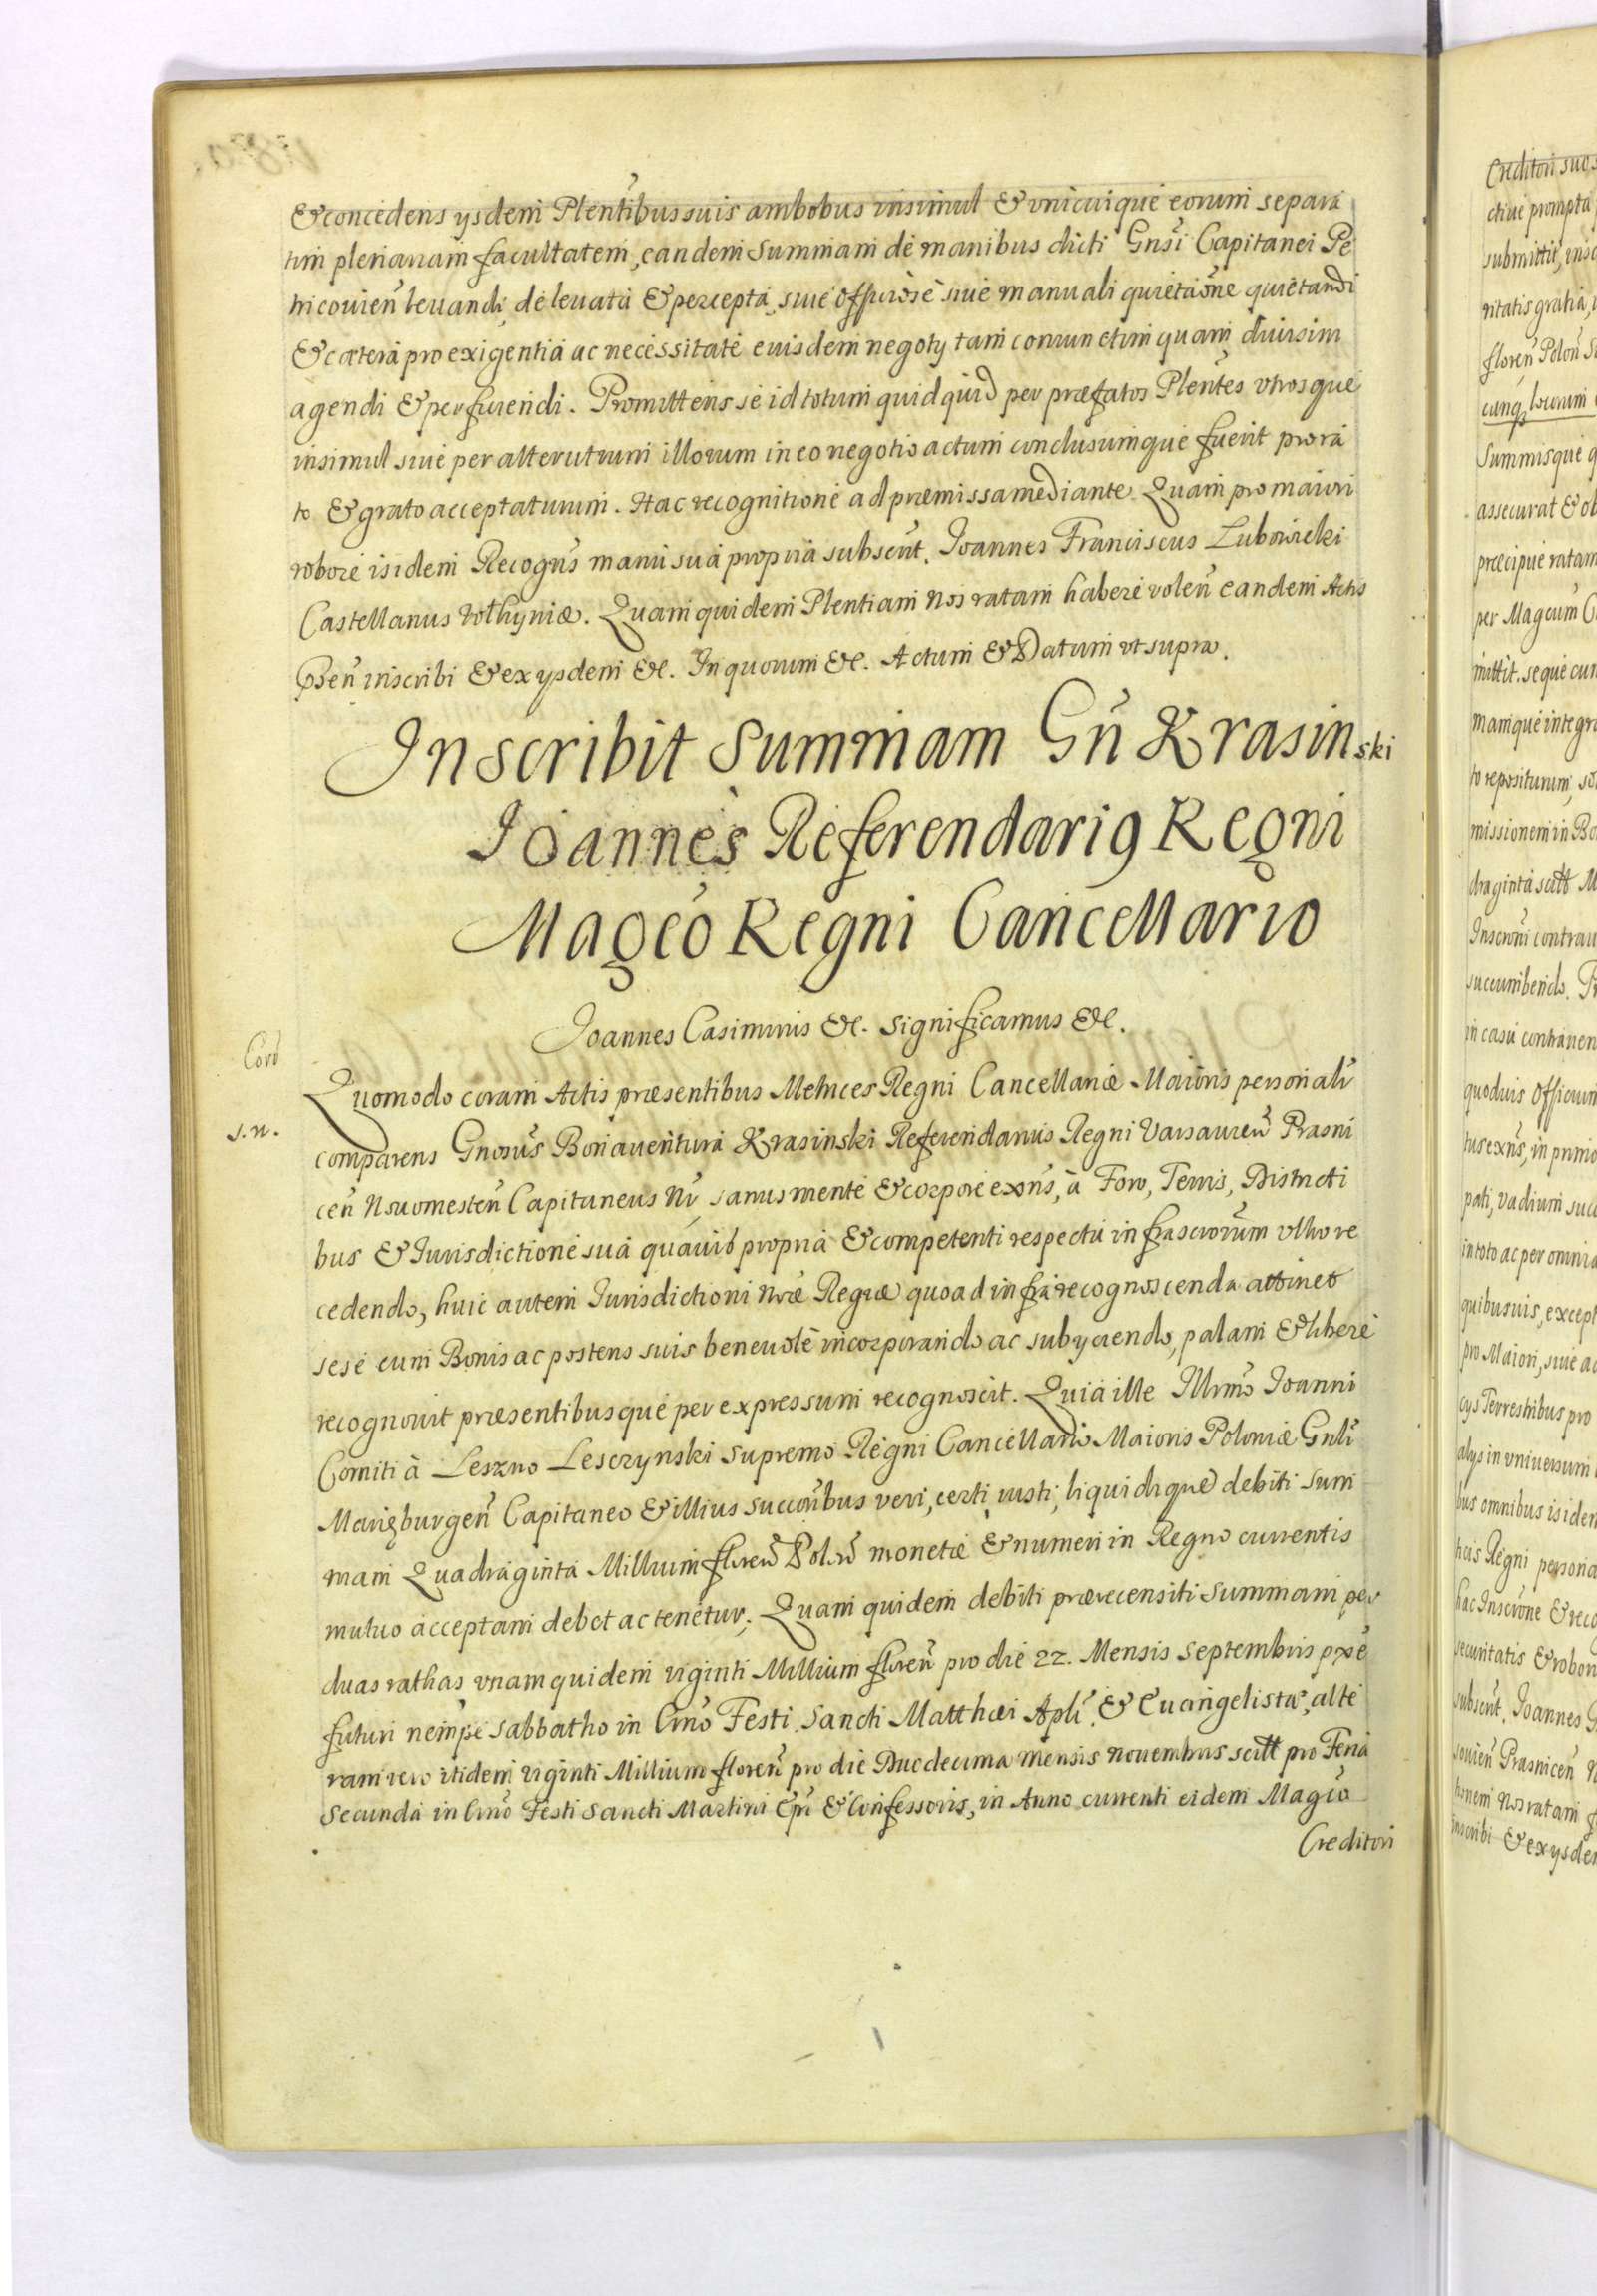 & concedens ysdem Plentibus suis ambobus insimul & vnicuique eorum separa
tim plenariam facultatem, eandem Summam de manibus dicti Gnsi Capitanei Pe
tricouien leuandi, de leuata & percepta, siue Officiosè siue manuali quietatione quietandi
& cætera pro exigentia ac necessitate euisdem negoty tam coniunctim quam diuisim
agendi & perficiendi. Promittens se id totum quidquid per præfatos Plentes vtrosque
insimul siue per alterutrum illorum in eo negotio actum conclusumque fuerit pro ra
to & grato acceptaturum. Hac recognitione ad præmissa mediante. Quam pro maiori
robore isidem Recogns manu sua propria subscrit. Joannes Franciscus Lubowicki
Castellanus Volhyniæ. Quam quidem Plentiam Nos ratam habere volen eandem Actis
Psen inscribi & ex ysdem &c. In quorum &c. Actum & Datum vt supra.
Inscribit Summam Gn Krasinski
Joannes Referendari9 Regni
Magco Regni Cancellario
Joannes Casimirus &c. Significamus &c.
Cord
Quomodo coram Actis præsentibus Metrices Regni Cancellariæ Maioris personalr
s.n.
comparens Gnosus Bonauentura Krasinski Referendarius Regni Varsauien Prasni
cen Nouomesten Capitaneus Nr, sanus mente & corpore exns, à Foro, Terris, Districti
bus & Jurisdictione sua quauis propria & competenti respectu infrascrorum vltro re
cedendo, huic autem Jurisdictioni Nræ Regiæ quoad infra recognoscenda attinet
sese cum Bonis ac posteris suis beneuolè incorporando ac subyciendo, palam & libere
recognouit præsentibusque per expressum recognoscit. Quia ille Illmo Joanni
Comiti à Leszno Lesczynski Supremo Regni Cancellario Maioris Poloniæ Gnli
Marięburgen Capitaneo & illius succoribus veri, certi, iusti, liquidique debiti Sum
mam Quadraginta Millium floren Polon monetæ & numeri in Regno currentis
mutuo acceptam debet ac tenetur. Quam quidem debiti prærecensiti Summam per
duas rathas vnam quidem viginti Millium floren pro die 22. Mensis Septembris pxe
futuri nempe Sabbatho in Crno Festi Sancti Matthæi Apli & Euangelistæ, alte
ram vero itidem viginti Millium floren pro die Duodecima mensis Nouembris scilt pro Feria
Secunda in Crno Festi Sancti Martini Epi & Confessoris, in Anno currenti eidem Magco
Creditori
Creditori suo s
ctiue prompta
submittit, ins
ritatis gratia,
floren Polon
cunq locorum
Summisque q
assecurat & ob
præcipue ratam
per Magcum C
mittit. seque cum
mamque integra
to repositurum, so
missionem in Bo
draginta scilt M
Inscroni contrau
succumbendo. Pr
in casu contrauen
quoduis Officium
tus exns, in primo
pati, vadium succ
in toto ac per omnia
quibusuis, except
pro Maiori, siue ad
cys Terrestribus pro
alys in vniuersum
bus omnibus isidem
hcis Regni persona
hac Inscrone & reco
securitatis & robor
subscrit. Joannes B
souien Prasnicen N
tionem Nos ratam
inscribi & ex ysdem